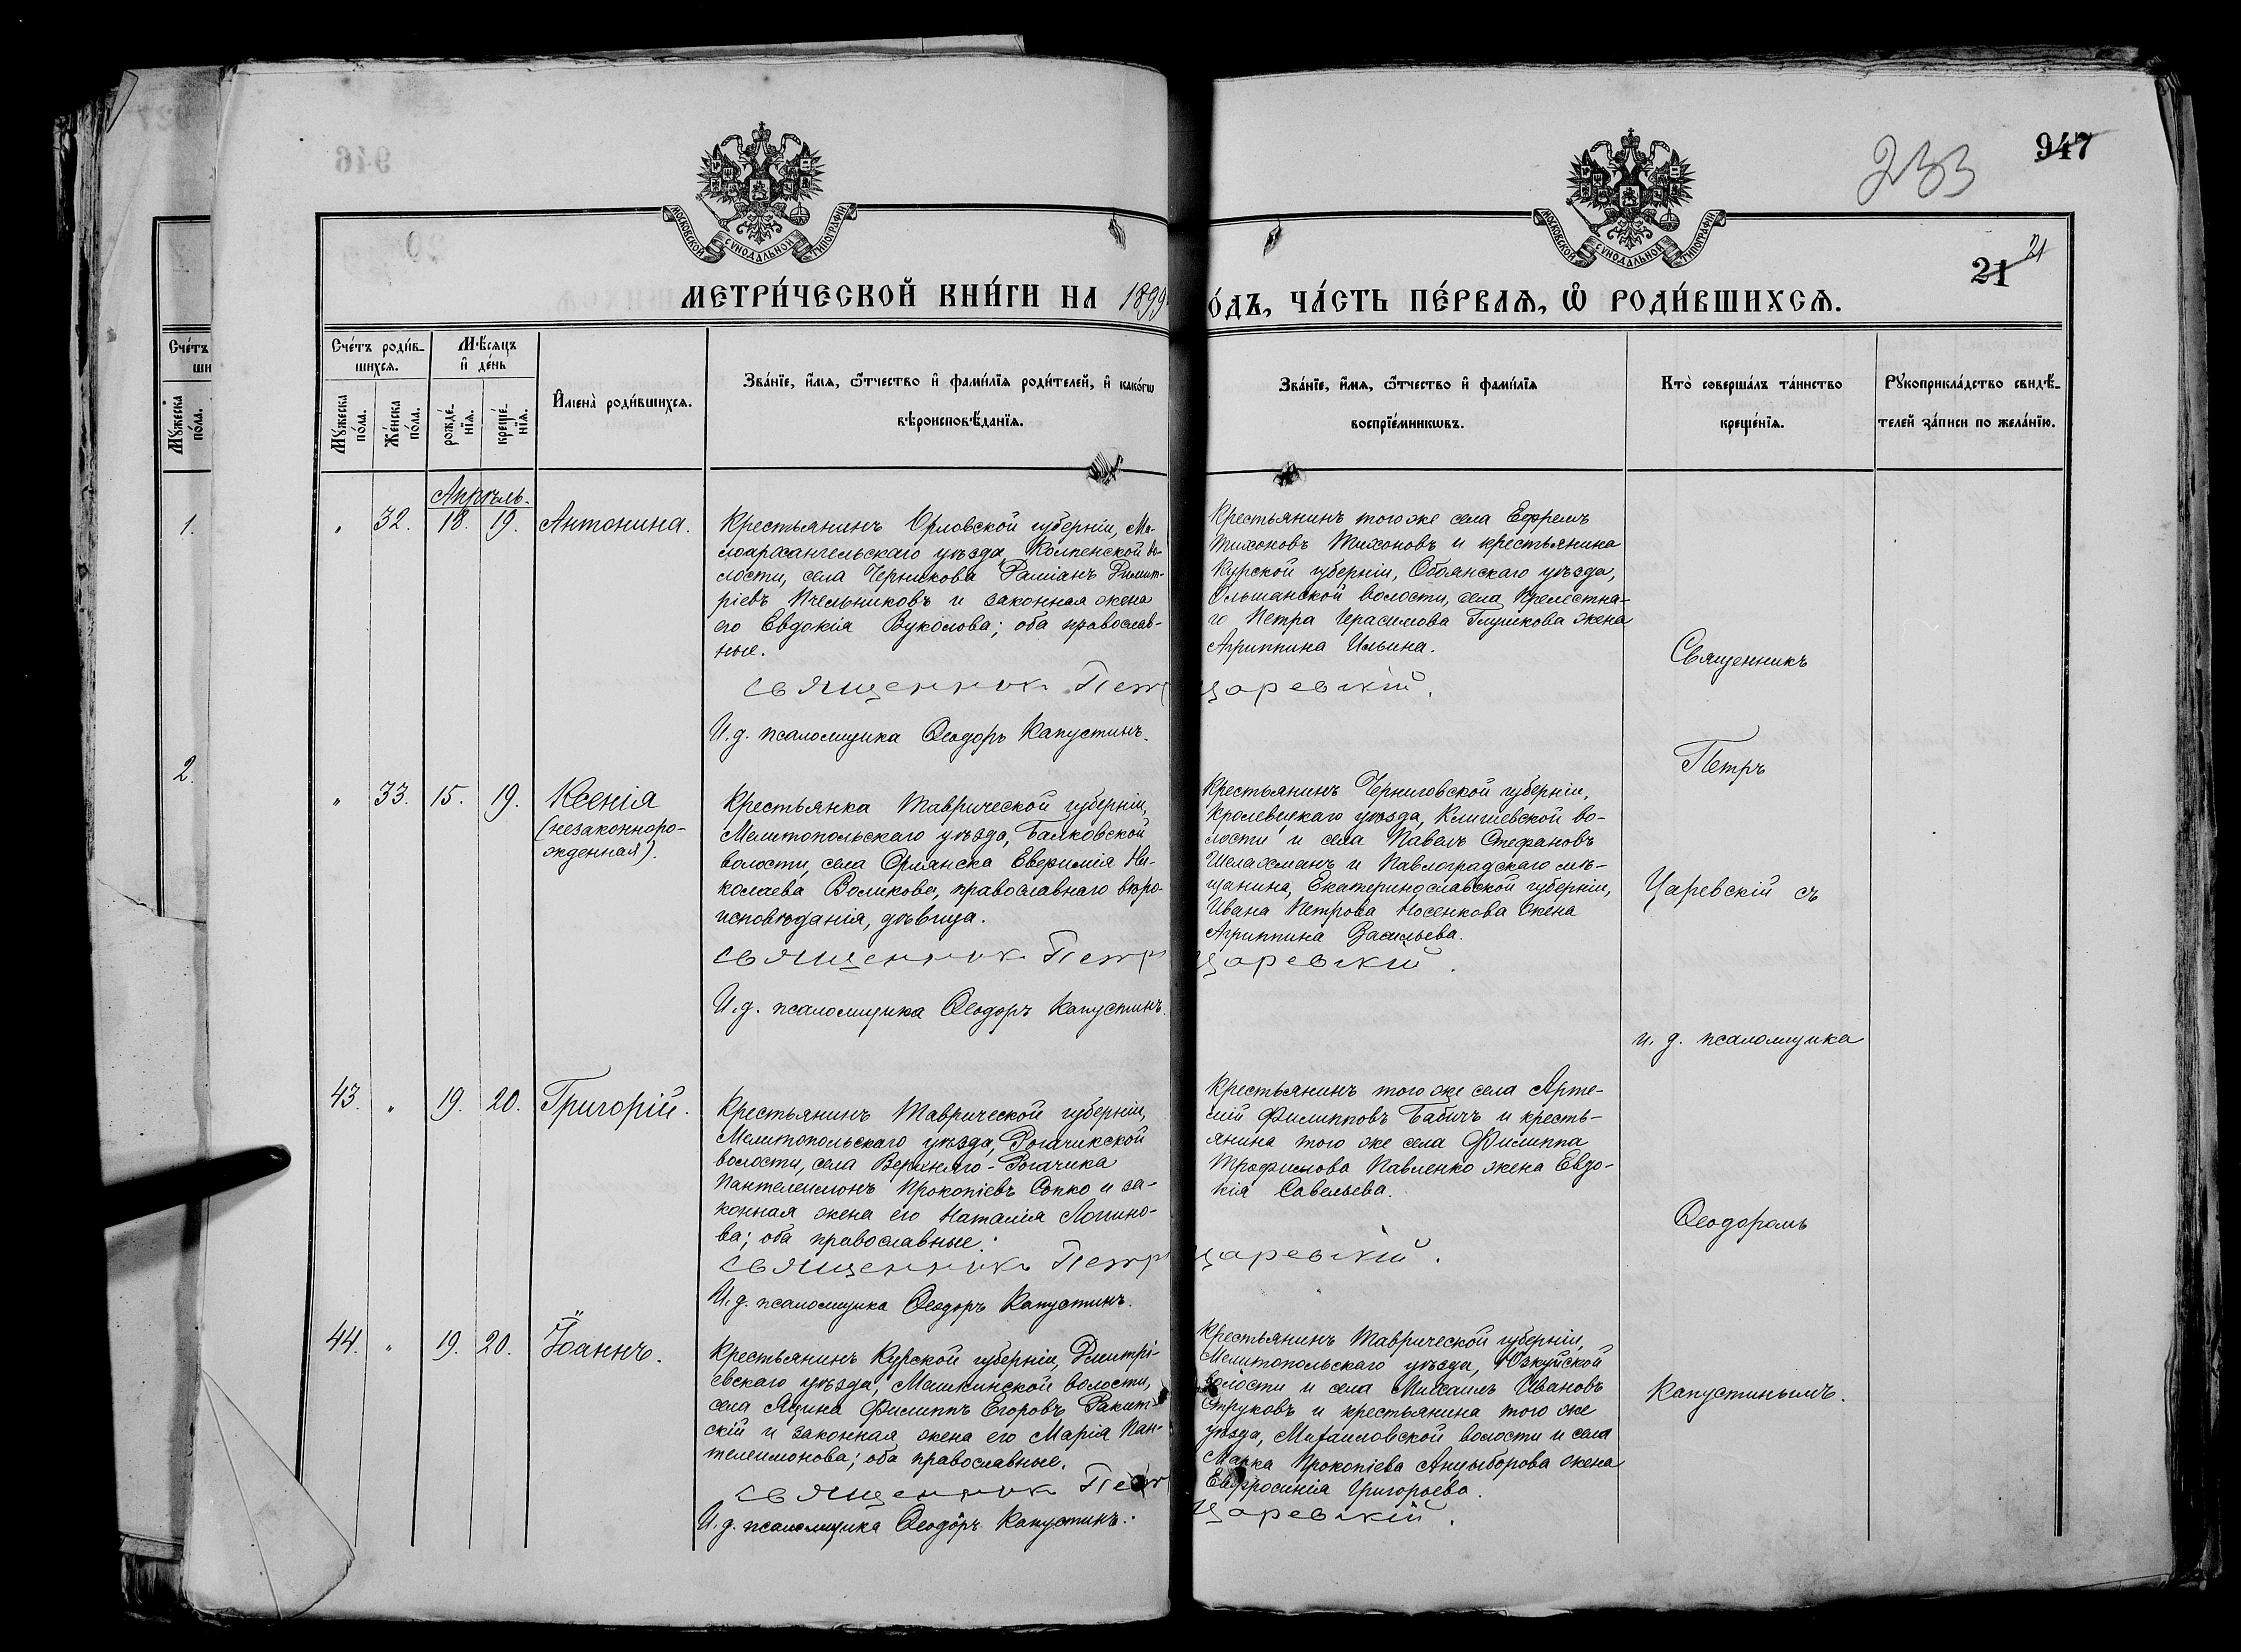 946
947
233
МОСКОВСКОЙ СУНОДАЛЬНОЙ ТИПОГРАФІИ
МОСКОВСКОЙ СУНОДАЛЬНОЙ ТИПОГРАФІИ
20
21
21
МЕТРИ́ЧЕСКОЙ КНИ́ГИ НА 1899
О́ДЪ, ЧА́СТЬ ПЕ́РВАѦ, Ѡ҆ РОДИ́ВШИХСѦ.
Сче́тъ
ши
Мꙋ́жеска по́ла.
1.
2.
Сче́тъ роди́в-
шихсѧ.
Мꙋ́жеска по́ла.
Же́нска по́ла.
Мѣ́сѧцъ
и҆ де́нь
рожде́-
нїѧ.
креще́-
нїѧ.
И҆мена̀ роди́вшихсѧ.
Зва́нїе, и҆́мѧ, ѻ҆́тчество и҆ фами́лїѧ роди́телей, и҆ како́гѡ
вѣроисповѣ́данїѧ.
Зва́нїе, и҆́мѧ, ѻ҆́тчество и҆ фами́лїѧ
воспрїе́мникѡвъ.
Кто̀ соверша́лъ та́инство
креще́нїѧ.
Рꙋкоприкла́дство свидѣ́-
телей за́писи по жела́нїю.
Апрѣль.
" 32. 18. 19. Антонина.
Крестьянинъ Орловской губерніи, Ма-
лоархангельскаго уѣзда, Колпенской во-
лости, села Черникова Даміанъ Димит-
ріевъ Пчельниковъ и законная жена
его Евдокія Вуколова; оба православ-
ные.
Священник Петр
И. д. псаломщика Ѳеодоръ Капустинъ.
Крестьянинъ того же села Ефремъ
Тихоновъ Тихоновъ и крестьянина
Курской губерніи, Обоянскаго уѣзда,
Ольшанской волости, села Прелестна-
го Петра Герасимова Глушкова жена
Агриппина Ильина.
Царевскій.
" 33. 15. 19. Ксенія
(незаконноро-
жденная).
Крестьянка Таврической губерніи,
Мелитопольскаго уѣзда, Балковской
волости, села Орлянска Евфимія Ни-
колаева Воликова, православнаго вѣро-
исповѣданія, дѣвица.
Священник Петр
И. д. псаломщика Ѳеодоръ Капустинъ.
Крестьянинъ Черниговской губерніи,
Кролевецкаго уѣзда, Клишевской во-
лости и села Павелъ Стефановъ
Шелахманъ и Павлоградскаго мѣ-
щанина, Екатеринославской губерніи,
Ивана Петрова Носенкова жена
Агриппина Васильева.
Царевскій.
43. " 19. 20. Григорій.
Крестьянинъ Таврической губерніи,
Мелитопольскаго уѣзда, Рогачикской
волости, села Верхняго-Рогачика
Пантелеимонъ Прокопіевъ Сопко и за-
конная жена его Наталія Логгино-
ва; оба православные.
Священник Петр
И. д. псаломщика Ѳеодоръ Капустинъ.
Крестьянинъ того же села Арте-
мій Филипповъ Бабичъ и кресть-
янина того же села Филиппа
Трофимова Павленко жена Евдо-
кія Савельева.
Царевскій.
44. " 19. 20. Іоаннъ.
Крестьянинъ Курской губерніи, Дмитрі-
евскаго уѣзда, Машкинской волости,
села Ацина Филиппъ Егоровъ Ракит-
скій и законная жена его Марія Пан-
телеимонова; оба православные.
Священник Петр
И. д. псаломщика Ѳеодоръ Капустинъ.
Крестьянинъ Таврической губерніи,
Мелитопольскаго уѣзда, Юзкуйской
волости и села Михаилъ Ивановъ
Струковъ и крестьянина того же
уѣзда, Михаиловской волости и села
Марка Прокопіева Анцыборова жена
Евфросинія Григорьева.
Царевскій.
Священникъ
Петръ
Царевскій съ
и. д. псаломщика
Ѳеодоромъ
Капустинымъ.